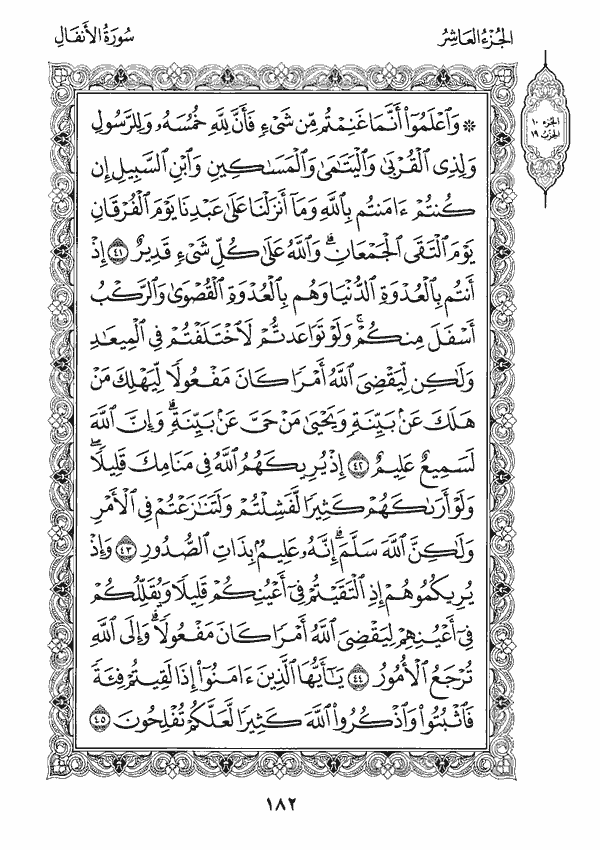 الجُزْءُ العَاشِرُ
سُورَةُ الأَنفَالِ
الجزء ١٠
الحزب ١٩
۞ وَٱعۡلَمُوٓاْ أَنَّمَا غَنِمۡتُم مِّن شَيۡءٖ فَأَنَّ لِلَّهِ خُمُسَهُۥ وَلِلرَّسُولِ
وَلِذِي ٱلۡقُرۡبَىٰ وَٱلۡيَتَٰمَىٰ وَٱلۡمَسَٰكِينِ وَٱبۡنِ ٱلسَّبِيلِ إِن
كُنتُمۡ ءَامَنتُم بِٱللَّهِ وَمَآ أَنزَلۡنَا عَلَىٰ عَبۡدِنَا يَوۡمَ ٱلۡفُرۡقَانِ
يَوۡمَ ٱلۡتَقَى ٱلۡجَمۡعَانِۗ وَٱللَّهُ عَلَىٰ كُلِّ شَيۡءٖ قَدِيرٌ ٤١ إِذۡ
أَنتُم بِٱلۡعُدۡوَةِ ٱلدُّنۡيَا وَهُم بِٱلۡعُدۡوَةِ ٱلۡقُصۡوَىٰ وَٱلرَّكۡبُ
أَسۡفَلَ مِنكُمۡۚ وَلَوۡ تَوَاعَدتُّمۡ لَٱخۡتَلَفۡتُمۡ فِي ٱلۡمِيعَٰدِ
وَلَٰكِن لِّيَقۡضِيَ ٱللَّهُ أَمۡرٗا كَانَ مَفۡعُولٗا لِّيَهۡلِكَ مَنۡ
هَلَكَ عَنۢ بَيِّنَةٖ وَيَحۡيَىٰ مَنۡ حَيَّ عَنۢ بَيِّنَةٖۗ وَإِنَّ ٱللَّهَ
لَسَمِيعٌ عَلِيمٌ ٤٢ إِذۡ يُرِيكَهُمُ ٱللَّهُ فِي مَنَامِكَ قَلِيلٗاۖ
وَلَوۡ أَرَىٰكَهُمۡ كَثِيرٗا لَّفَشِلۡتُمۡ وَلَتَنَٰزَعۡتُمۡ فِي ٱلۡأَمۡرِ
وَلَٰكِنَّ ٱللَّهَ سَلَّمَۗ إِنَّهُۥ عَلِيمُۢ بِذَاتِ ٱلصُّدُورِ ٤٣ وَإِذۡ
يُرِيكُمُوهُمۡ إِذِ ٱلۡتَقَيۡتُمۡ فِيٓ أَعۡيُنِكُمۡ قَلِيلٗا وَيُقَلِّلُكُمۡ
فِيٓ أَعۡيُنِهِمۡ لِيَقۡضِيَ ٱللَّهُ أَمۡرٗا كَانَ مَفۡعُولٗاۗ وَإِلَى ٱللَّهِ
تُرۡجَعُ ٱلۡأُمُورُ ٤٤ يَٰٓأَيُّهَا ٱلَّذِينَ ءَامَنُوٓاْ إِذَا لَقِيتُمۡ فِئَةٗ
فَٱثۡبُتُواْ وَٱذۡكُرُواْ ٱللَّهَ كَثِيرٗا لَّعَلَّكُمۡ تُفۡلِحُونَ ٤٥
١٨٢